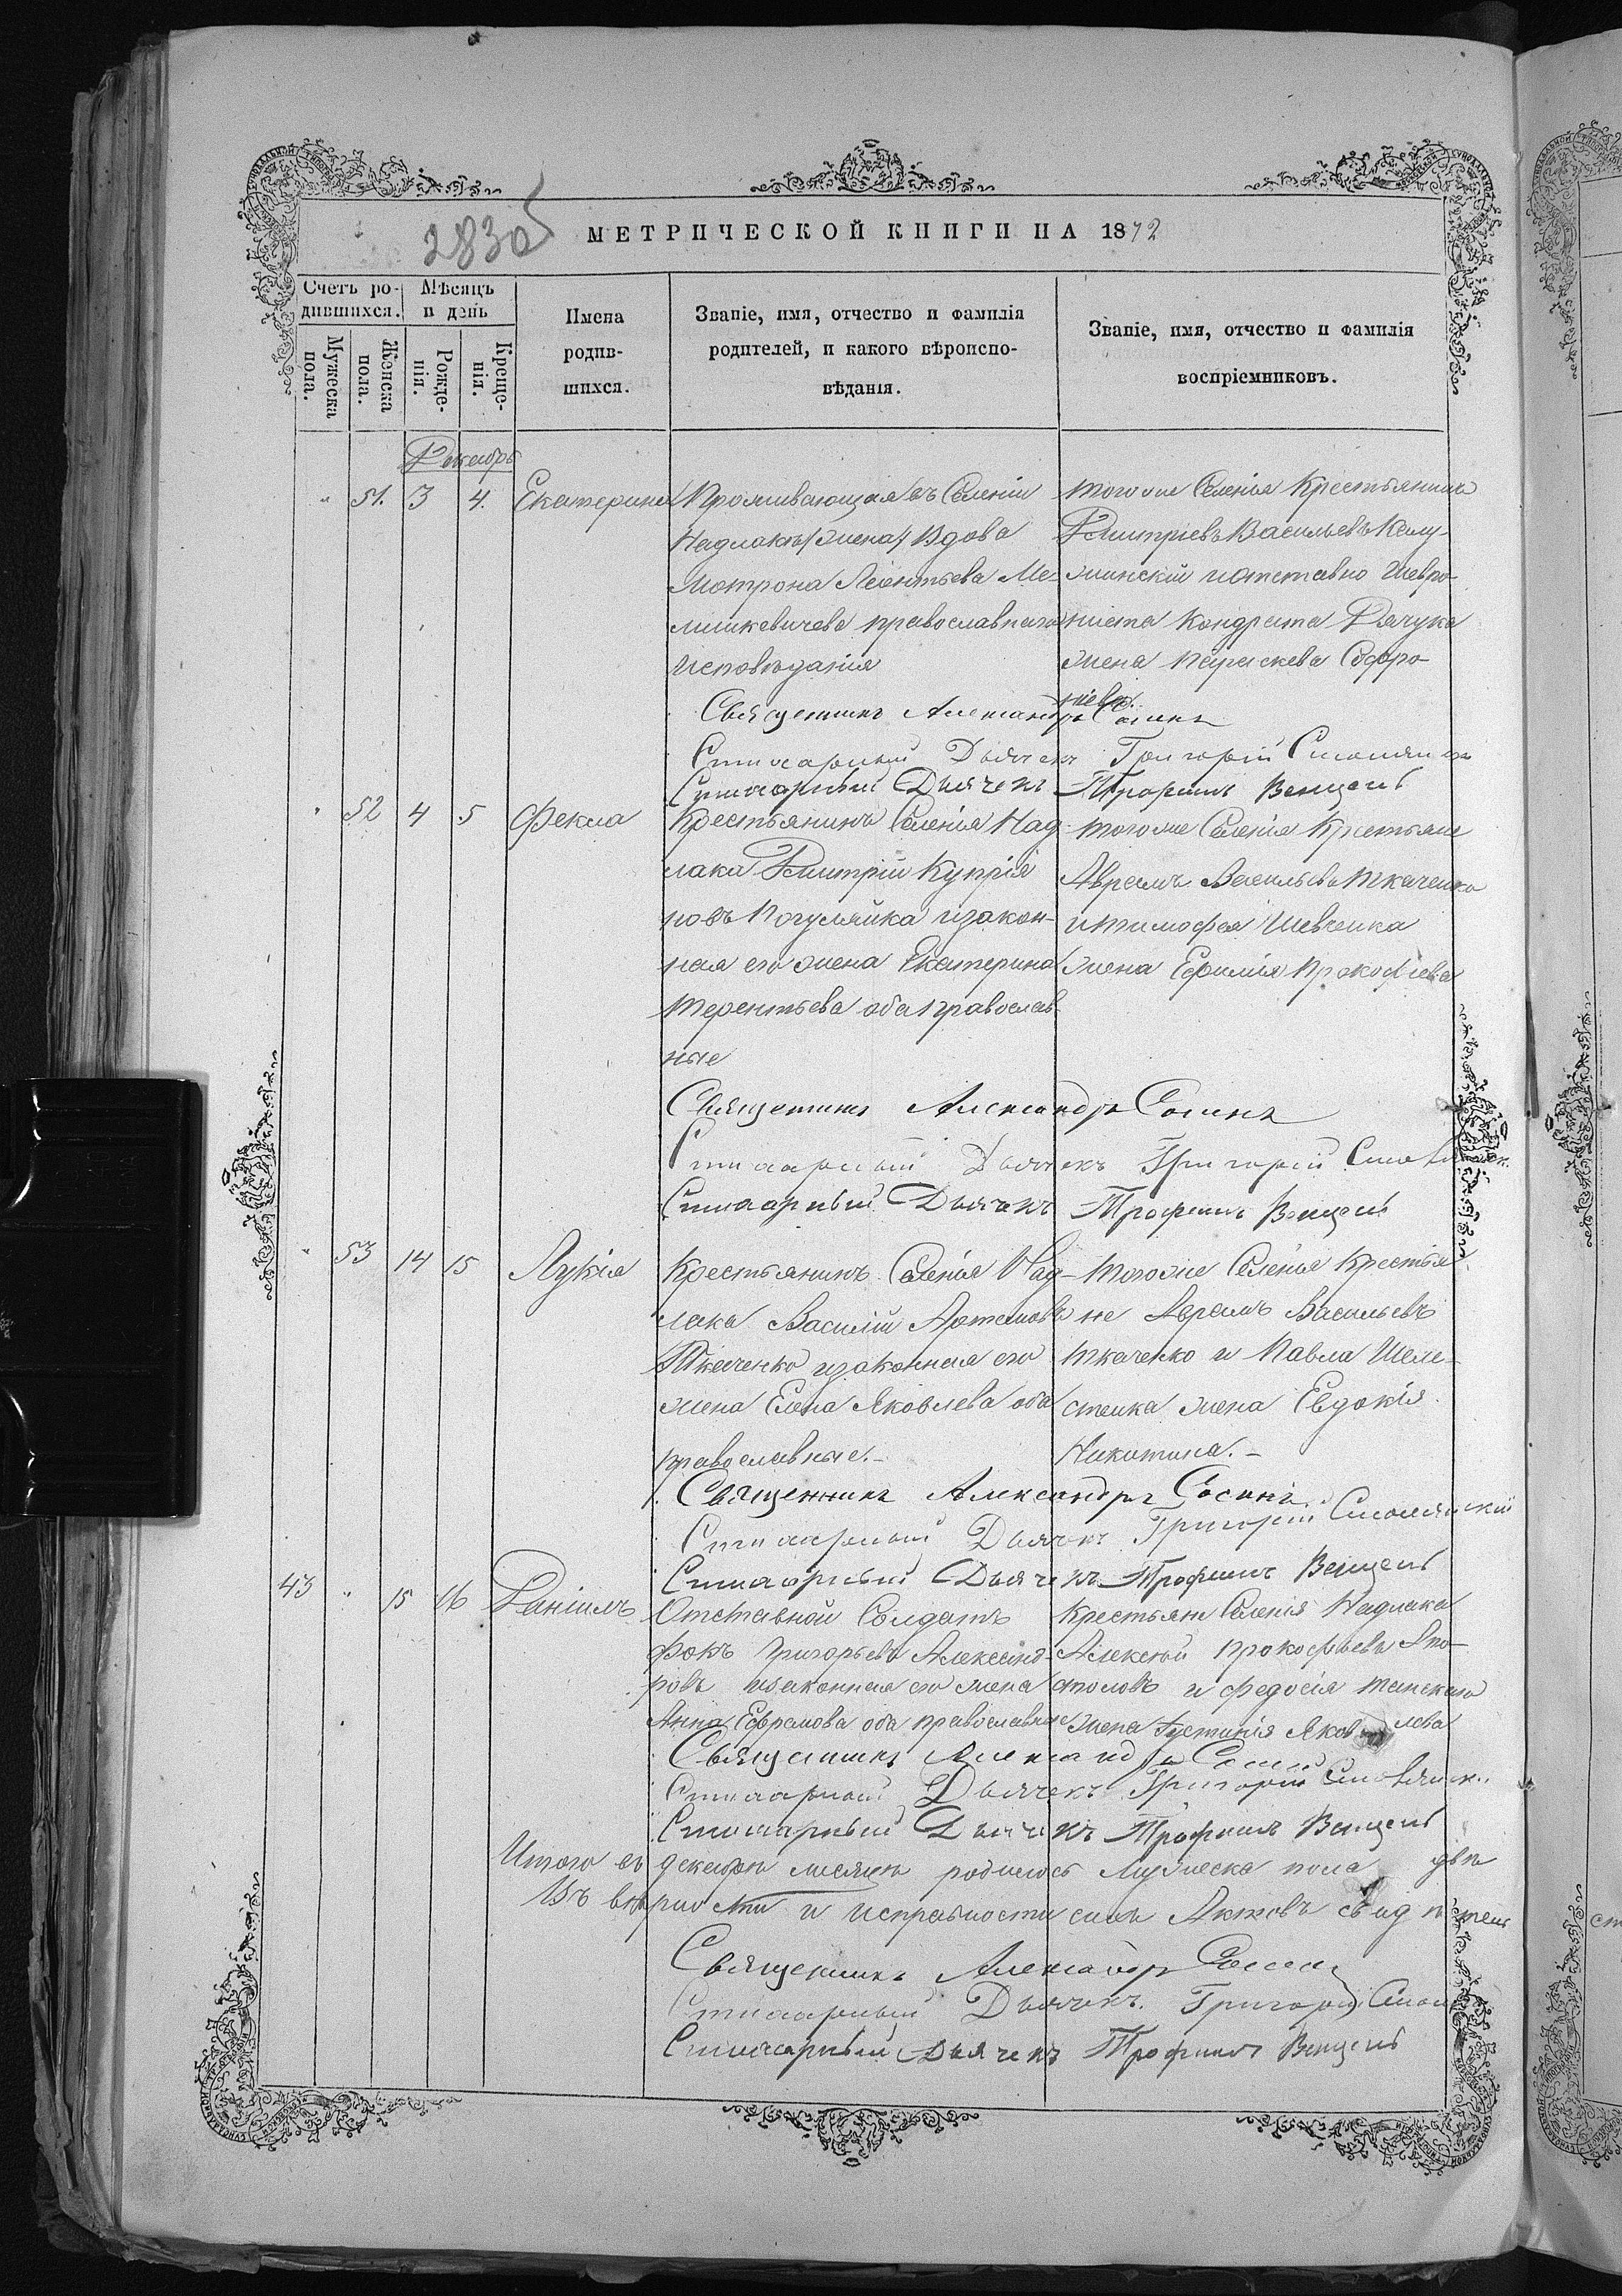 2830
МЕТРИЧЕСКОЙ КНИГИ НА 1872
Счетъ ро-
дившихся.
Мѣсяцъ
и день
Мужеска
пола.
Женска
пола.
Рожде-
нія.
Креще-
нія.
Имена
родив-
шихся.
Званіе, имя, отчество и фамилія
родителей, и какого вѣроиспо-
вѣданія.
Званіе, имя, отчество и фамилія
воспріемниковъ.
Декабрь
" 51. 3 4. Екатерина
Проживающая въ Селеніи
Надлакъ Вдова
Мотрона Леонтьева Ме-
лишкевичева православнаго
исповѣданія
тогоже Селенія Крестьянинъ
Дмитріевъ Васильевъ Калу-
жинскій и отставно Шевро-
ниста Кондрата Дячука
жена Параскева Софро-
ніева.
Священникъ Александръ Сосинъ
Стихарный Дьячекъ Григорій Смолянскій
Стихарный Дьячекъ Трофимъ Венцель
" 52 4 5 Фекла
Крестьянинъ Селенія Над-
лака Дмитрій Купрія
новъ Погуляйка и закон-
ная его жена Екатерина
Терентьева оба православ-
ные
тогоже Селенія Крестьяне
Аврамъ Васильевъ Ткаченко
и Тимофея Шевченка
жена Ефимія Прокофіева
Священникъ Александръ Сосинъ
Стихарный Дьячекъ Григорій Смолянск.
Стихарный Дьячекъ Трофимъ Венцель
" 53 14 15 Лукія
Крестьянинъ Селенія Над-
лака Василій Артемовъ
Ткаченко и законная его
жена Елена Яковлева оба
православные.-
тогоже Селенія Крестья
не Аврамъ Васильевъ
Ткаченко и Павла Шеле-
стенка жена Евдокія
Никитина.-
Священникъ Александръ Сосинъ
Стихарный Дьячекъ Григорій Смолянскій
Стихарный Дьячекъ Трофимъ Венцель
43 " 15 16 Даніилъ
Отставной Солдатъ
Фокъ Григорьевъ Александ-
ровъ и законная его жена
Анна Ефремова оба православные
Крестьяне Селенія Надлака
Алексѣй Прокофьевъ Апо-
столовъ и Федосія
жена Іустинія Яковлева
Священникъ Александръ Сосинъ
Стихарный Дьячекъ Григорій Смолянск.
Стихарный Дьячекъ Трофимъ Венцель
Итого въ декабрѣ мѣсяцѣ родилось мужеска пола два
Въ вѣрности и исправности сихъ Актовъ свидѣтели
Священникъ Александръ Сосинъ
Стихарный Дьячекъ. Григорій Смол
Стихарный Дьячекъ Трофимъ Венцель